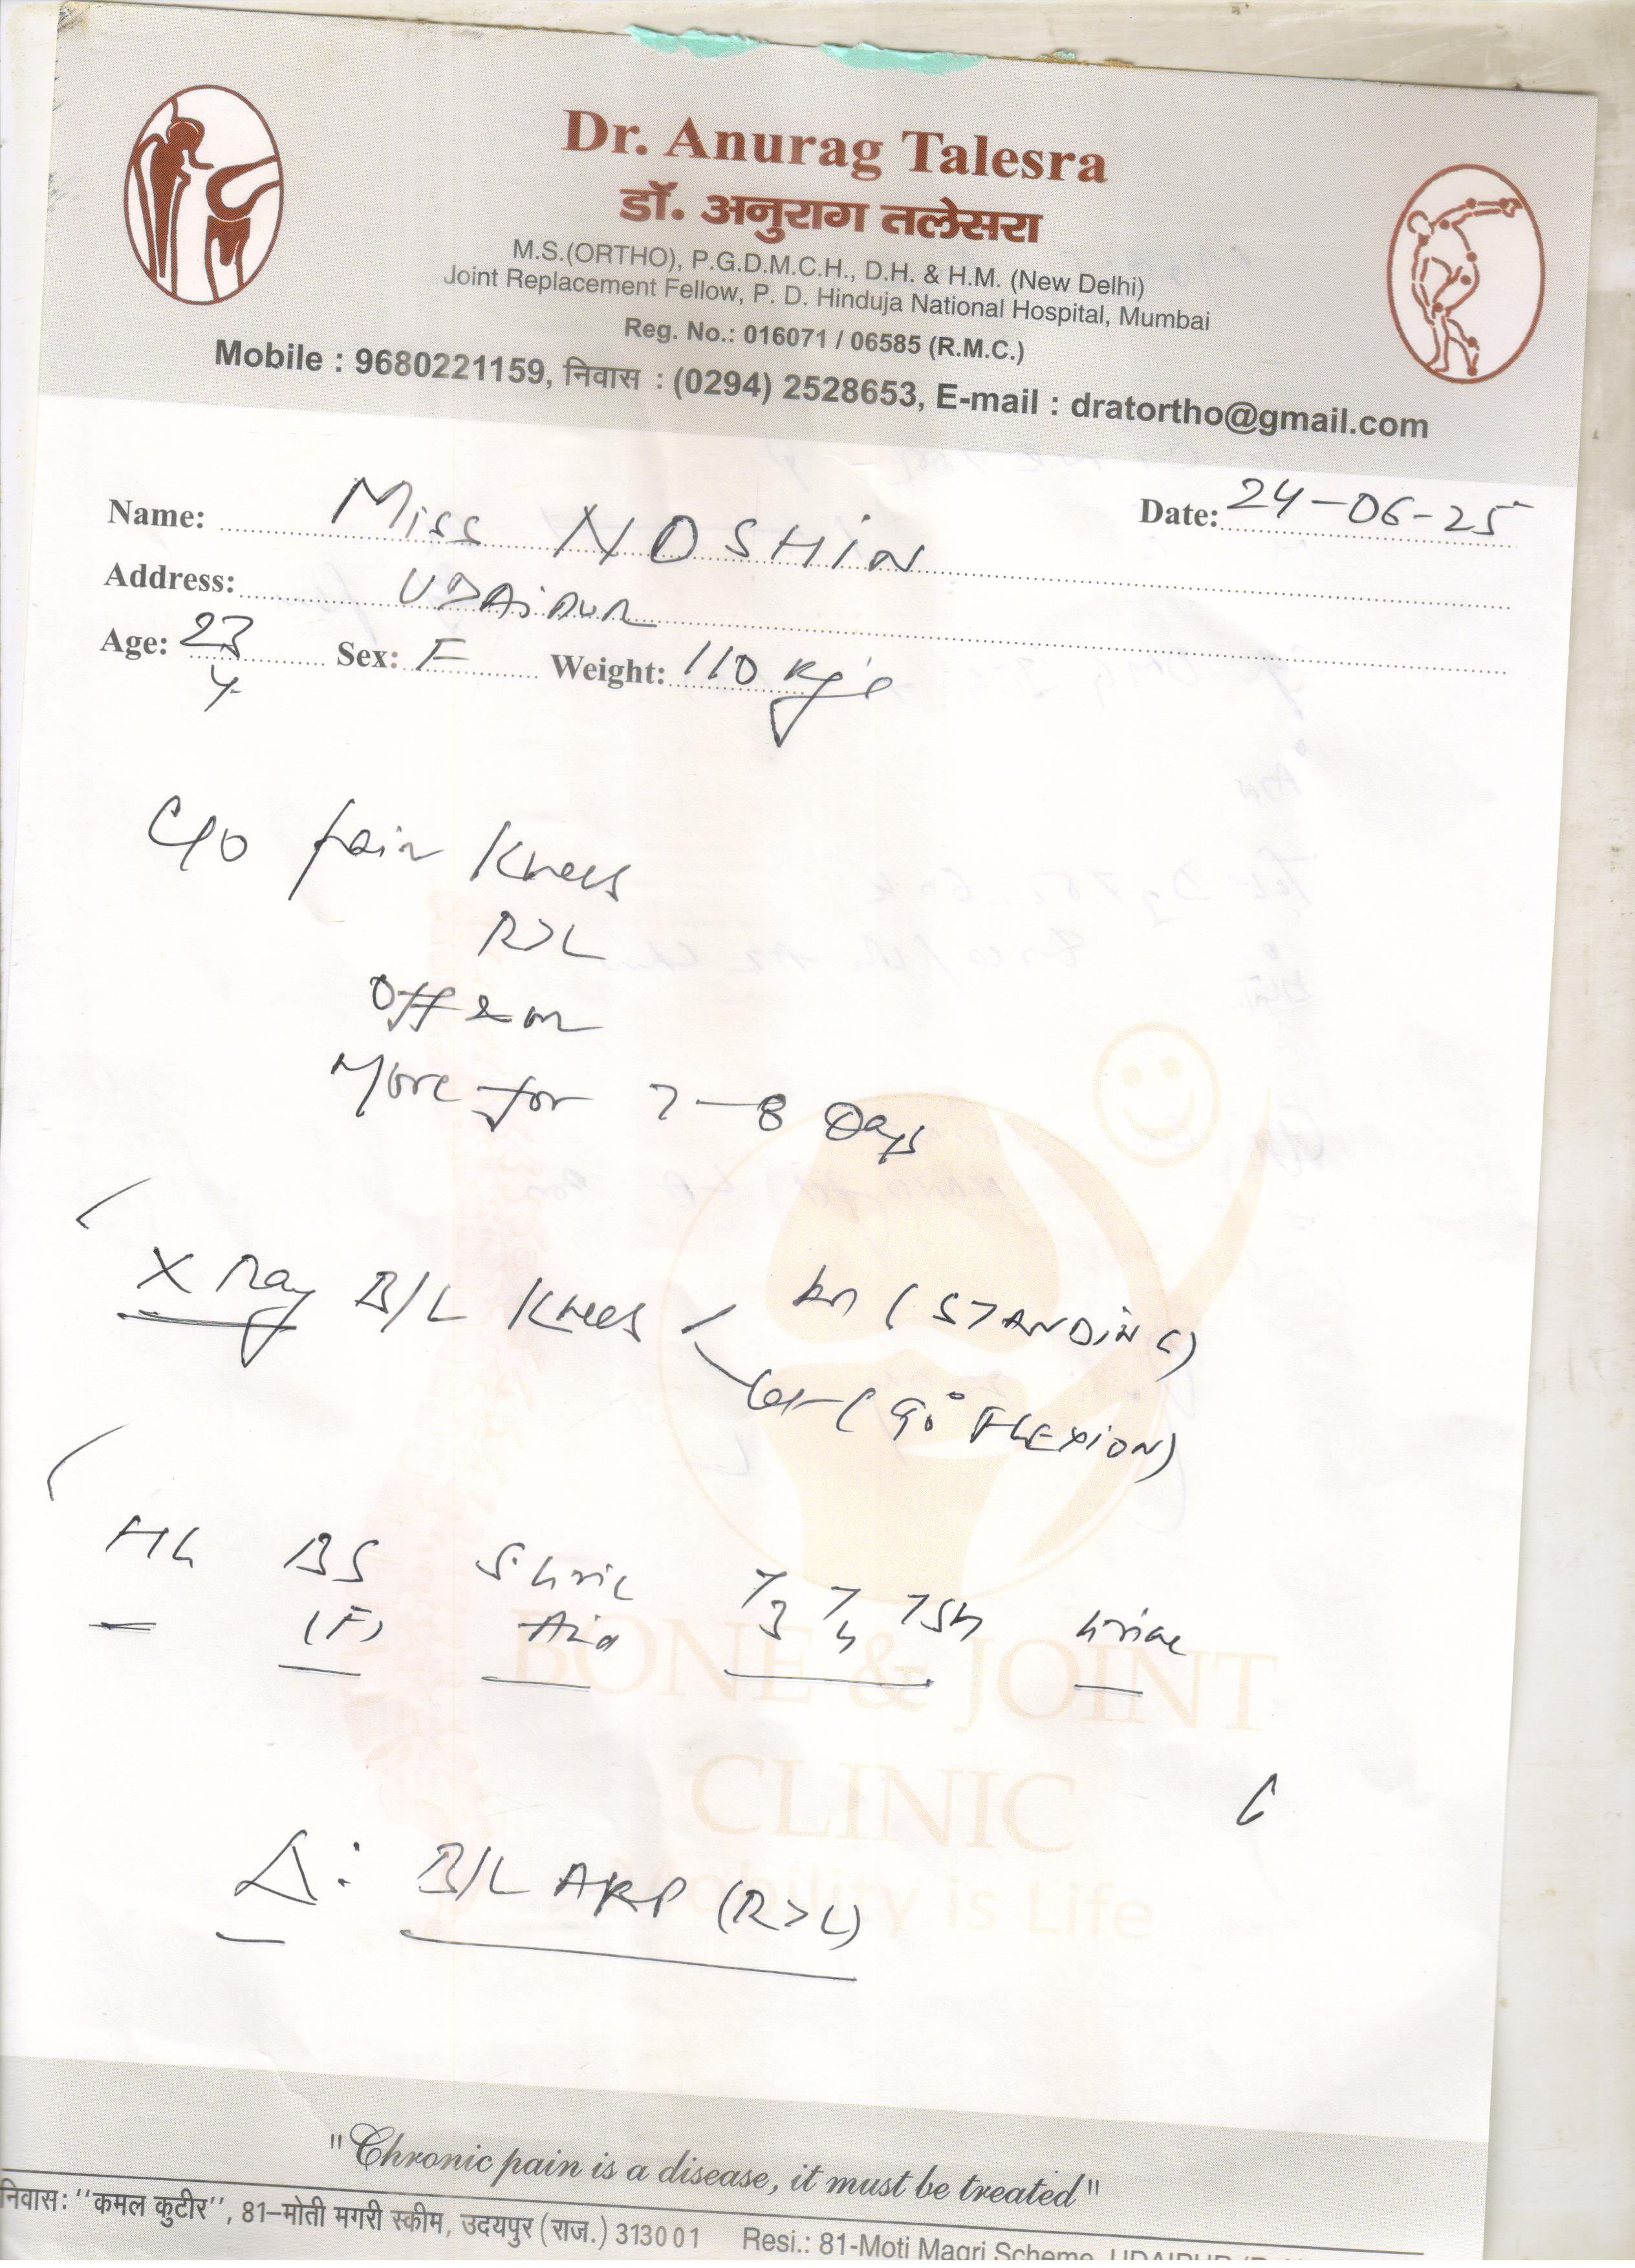 Dr. Anurag Talesra
डॉ. अनुराग तलेसरा
M.S.(ORTHO), P.G.D.M.C.H., D.H. & H.M. (New Delhi)
Joint Replacement Fellow, P. D. Hinduja National Hospital, Mumbai
Reg. No.: 016071 / 06585 (R.M.C.)
Mobile : 9680221159, निवास : (0294) 2528653, E-mail : dratortho@gmail.com
Name: Miss NOSHIN Date: 24-06-25
Address: UDAiPUR
Age: 23 Sex: F Weight: 110 Kg's
y
C/O pain Knees
R>L
Off & on
More for 7-8 Days
X Ray B/L Knees AP (STANDING)
Lat (90° FLEXION)
BS S. Uric T3 T4 TSH Urine
(F) Acid
BONE & JOINT
CLINIC
Mobility is Life
Δ: B/L AKP (R>L)
"Chronic pain is a disease, it must be treated"
निवास: ''कमल कुटीर'', 81-मोती मगरी स्कीम, उदयपुर (राज.) 313001 Resi.: 81-Moti Magri Scheme, UDAIPUR